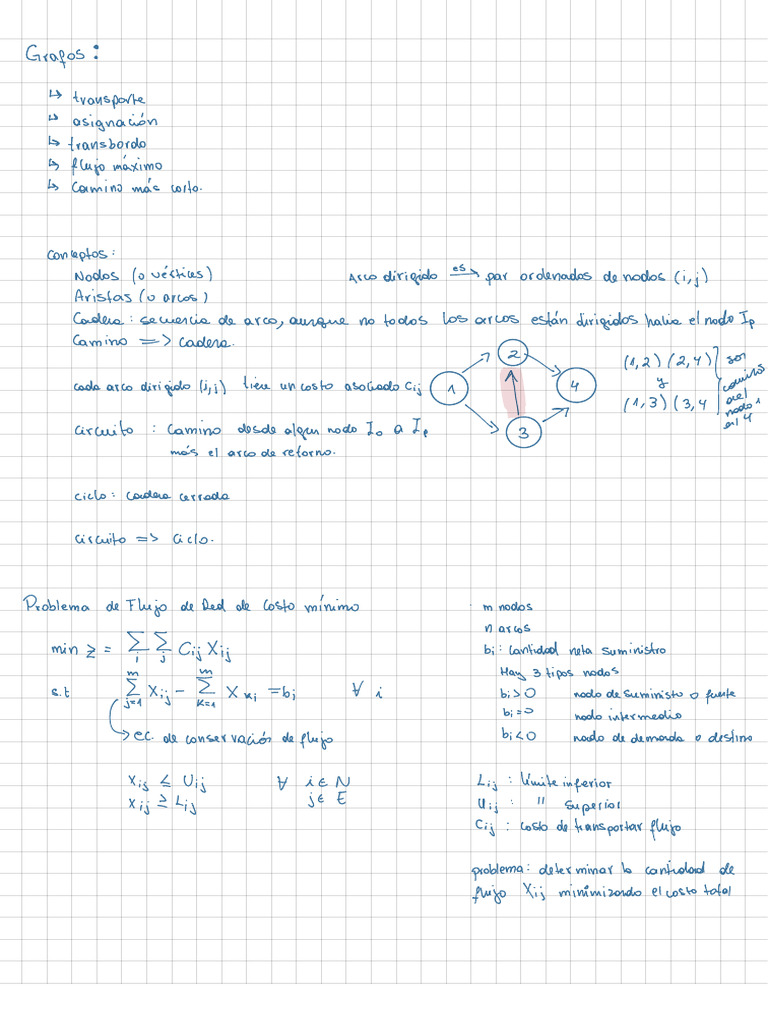 Grafos:
↳ transporte
↳ asignación
↳ transbordo
↳ flujo máximo
↳ Camino más corto.
Conceptos:
Nodos (o vértices)
Arco dirigido es→ par ordenados de nodos (i,j)
Aristas (o arcos)
Cadena: secuencia de arco, aunque no todos los arcos están dirigidos hacia el nodo Ip
Camino => cadena.
cada arco dirigido (i,j) tiene un costo asociado Cij
1
2
3
4
(1,2) (2,4)
y
(1,3) (3,4
son
caminos
del
nodo 1
al 4
circuito : Camino desde algun nodo Io a Ip
más el arco de retorno.
ciclo: cadena cerrada
circuito => ciclo.
Problema de Flujo de Red de Costo mínimo
min z = ∑i ∑j Cij Xij
s.t ∑j=1^m Xij - ∑k=1^m Xki = bi ∀ i
→ ec. de conservación de flujo
Xij ≤ Uij ∀ i ∈ N
Xij ≥ Lij j ∈ E
m nodos
n arcos
bi: cantidad neta suministro
Hay 3 tipos nodos
bi>0 nodo de suministro o fuente
bi=0 nodo intermedio
bi<0 nodo de demanda o destino
Lij : límite inferior
Uij : " superior
Cij : costo de transportar flujo
problema: determinar la cantidad de
flujo Xij minimizando el costo total